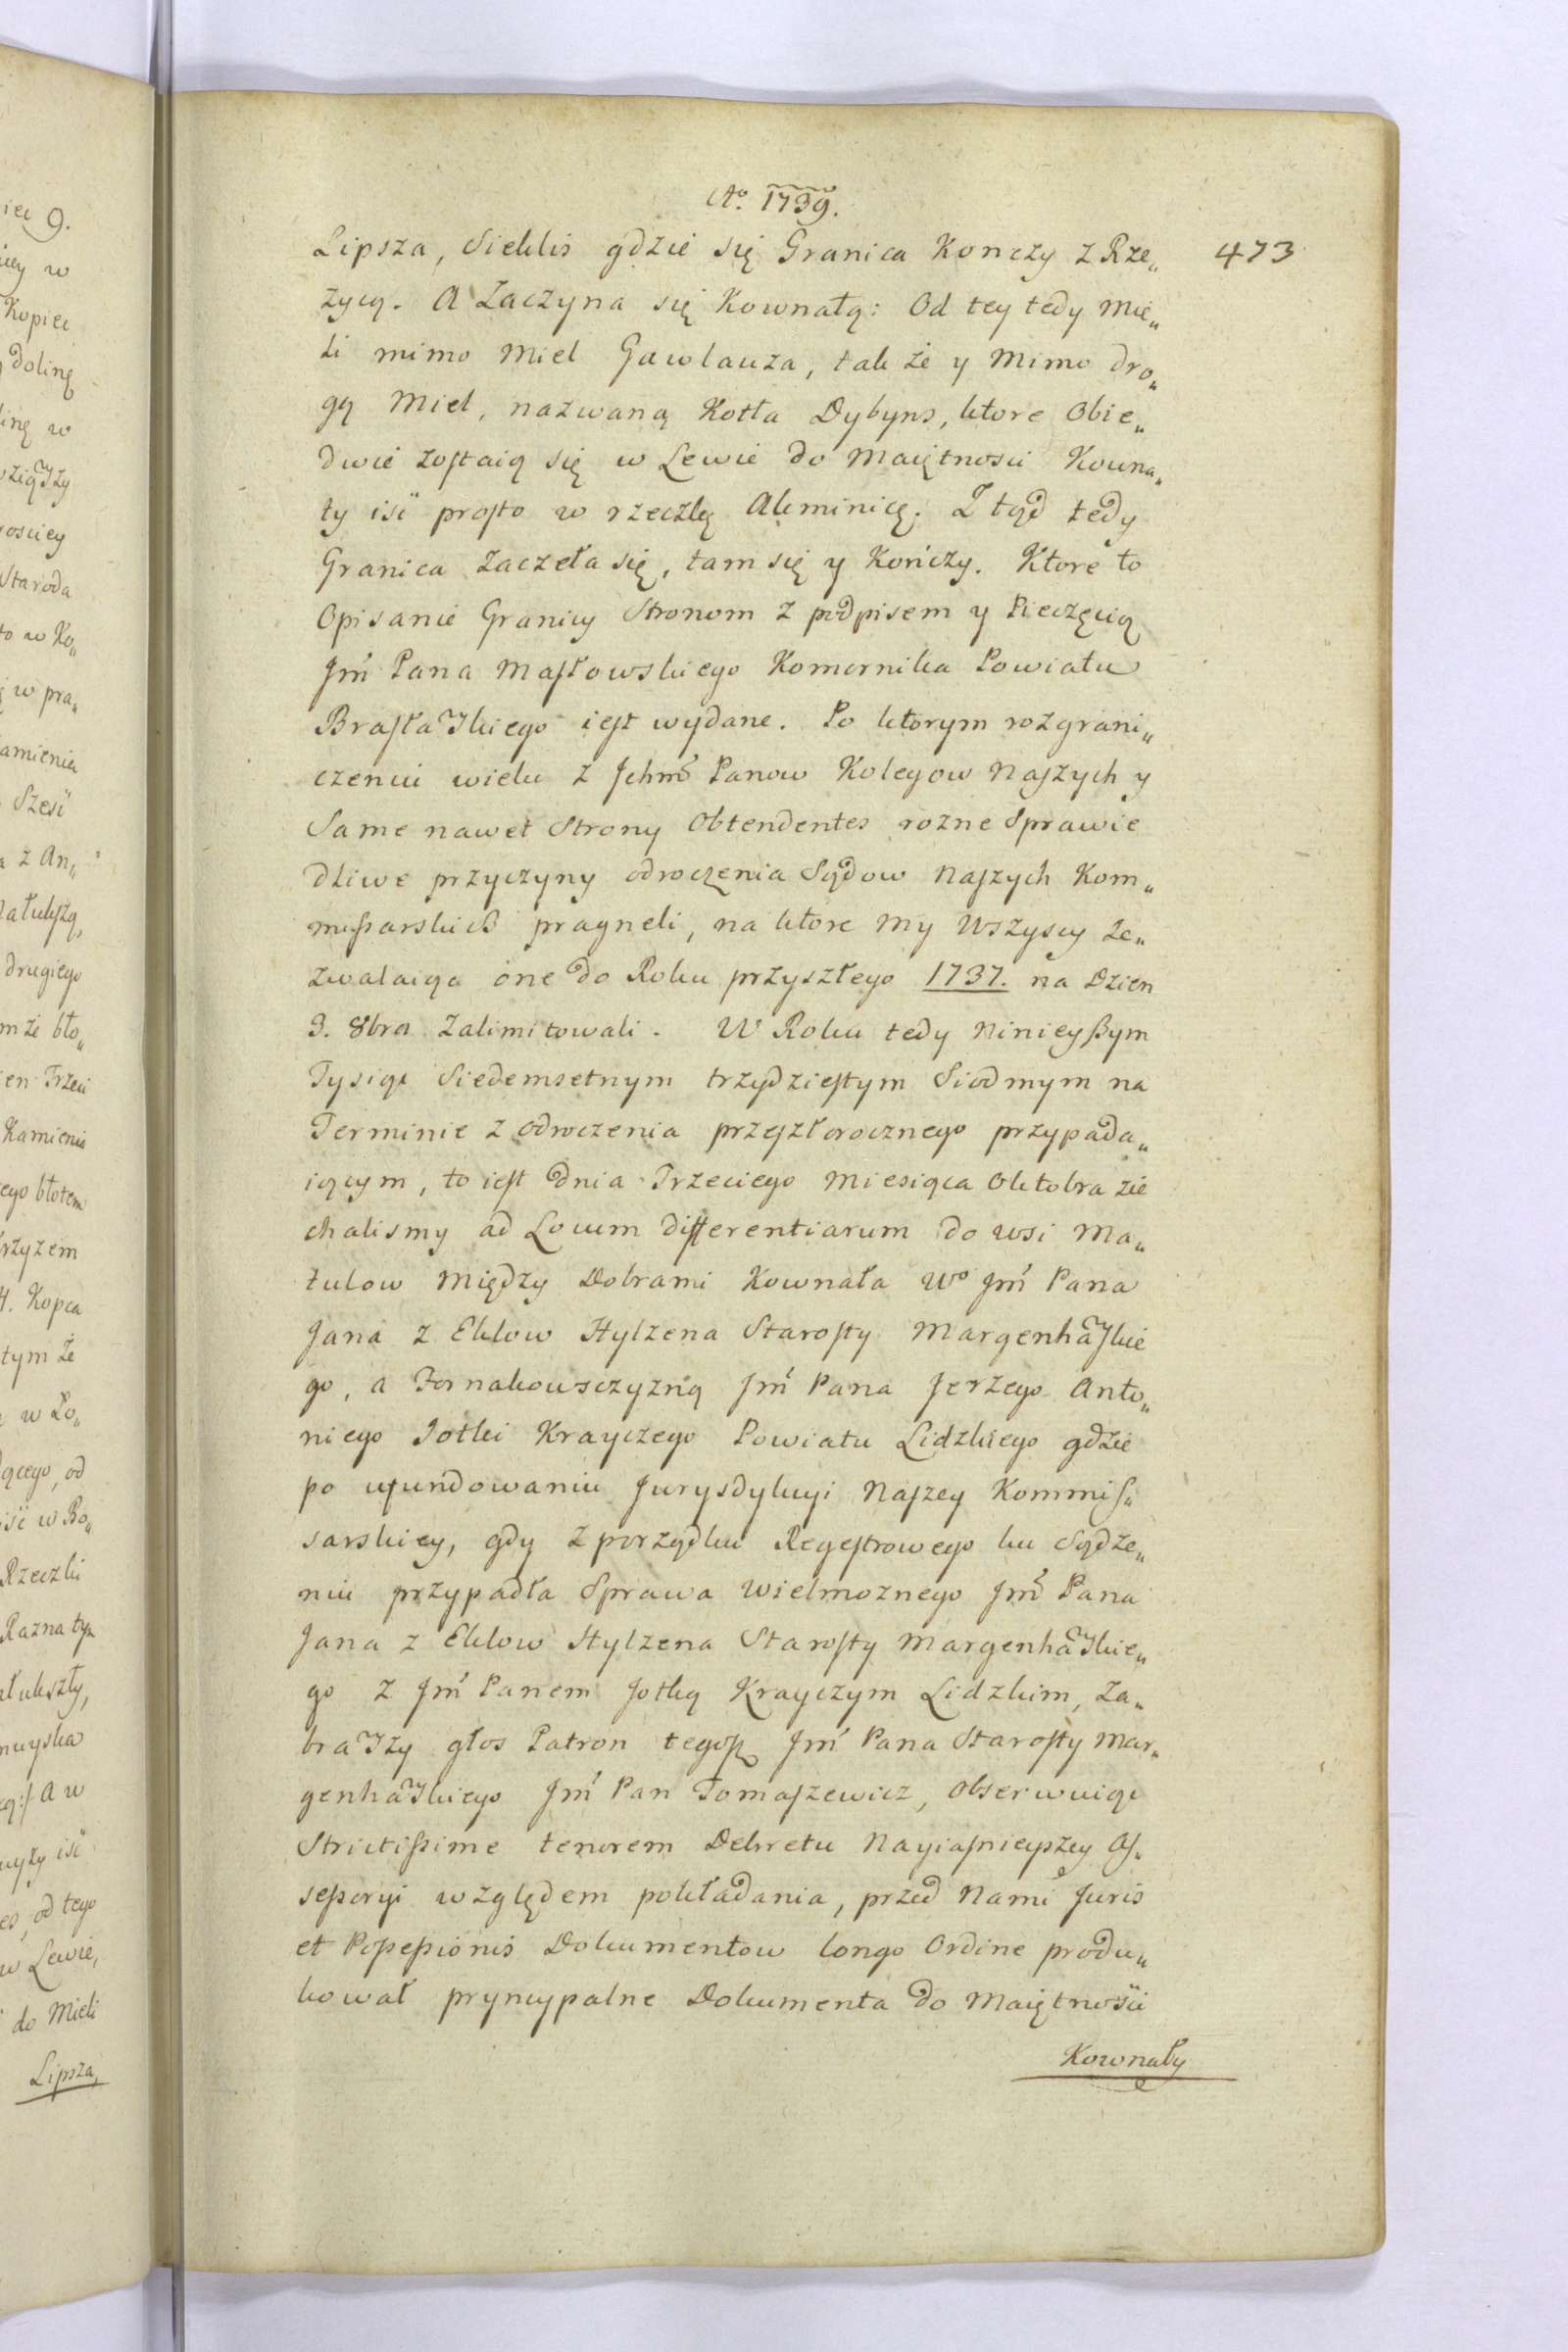 Ao. 1739.
473
Lipsza, Sieklis gdzie się Granica Konczy z Rze„
życą. A Zaczyna się Kownatą: Od tey tedy Mie„
li mimo Miel Gawlauza, tak że y Mimo dro„
gą Miel, nazwaną Kotła Dybyns, ktore Obie„
dwie zostaią się w Lewie do Maiętnosci Kowna„
ty iść prosto w rzeczkę Akminicę. Z tąd tedy
Granica zaczeła się, tam się y Kończy. Ktore to
Opisanie Granicy Stronom z podpisem y Pieczęcią
Jmć Pana Masłowskiego Komornika Powiatu
Brasławskiego iest wydane. Po ktorym rozgrani„
czeniu wielu z Ichmć Panow Kolegow Naszych y
Same nawet Strony Obtendentes rozne Sprawie
dliwe przyczyny odroczenia Sądow Naszych Kom„
missarskich pragneli, na ktore My Wszyscy ze„
zwalaiąc one do Roku przyszłego 1737. na Dzien
3. 8bra zalimitowali. W Roku tedy Ninieyszym
Tysiąc Siedemsetnym trzydziestym Siodmym na
Terminie z odroczenia przeszłorocznego przypada„
iącym, to iest dnia Trzeciego Miesiąca Oktobra zie
chalismy ad Locum differentiarum do wsi Ma„
tulow Między Dobrami Kownata Wo Jmć Pana
Jana z Eklow Hylzena Starosty Margenhawskie
go, a Fornakowsczyzną Jmć Pana Jerzego Anto„
niego Jotki Krayczego Powiatu Lidzkiego gdzie
po ufundowaniu Jurysdykcyi Naszey Kommis„
sarskiey, gdy z porządku Regestrowego ku Sądze„
niu przypadła Sprawa Wielmoznego Jmć Pana
Jana z Eklow Hylzena Starosty Margenhawskie„
go z Jmć Panem Jotką Krayczym Lidzkim, Za„
brawszy głos Patron tegosz Jmć Pana Starosty Mar„
genhawskiego Jmć Pan Tomaszewicz, Obserwuiąc
Strictissime tenorem Dekretu Nayiasnieyszey As„
sessoryi względem pokładania, przed Nami Juris
et Possessionis Dokumentow longo Ordine produ„
kował pryncypalne Dokumenta do Maiętności
Kownaty